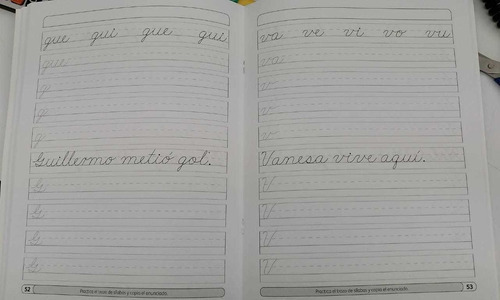 gue gui gue gui
gue
g
g
g
Guillermo metió gol.
G
G
G
G
52 Practica el trazo de sílabas y copia el enunciado.
va ve vi vo vu
va
v
v
v
Vanesa vive aquí.
V
V
V
V
Practica el trazo de sílabas y copia el enunciado. 53